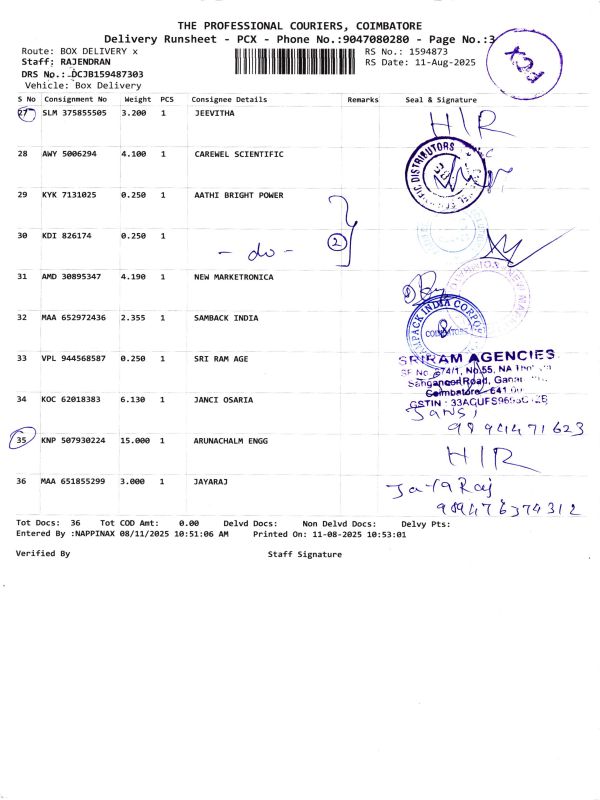 THE PROFESSIONAL COURIERS, COIMBATORE
Delivery Runsheet - PCX - Phone No.:9047080280 - Page No.:3
Route: BOX DELIVERY x
RS No.: 1594873
Staff: RAJENDRAN
RS Date: 11-Aug-2025
DRS No.: DCJB159487303
Vehicle: Box Delivery
PCX
S No Consignment No Weight PCS Consignee Details Remarks Seal & Signature
27 SLM 375855505 3.200 1 JEEVITHA H/R
28 AWY 5006294 4.100 1 CAREWEL SCIENTIFIC
29 KYK 7131025 0.250 1 AATHI BRIGHT POWER
30 KDI 826174 0.250 1 - do - 2
31 AMD 30895347 4.190 1 NEW MARKETRONICA
32 MAA 652972436 2.355 1 SAMBACK INDIA
33 VPL 944568587 0.250 1 SRI RAM AGE
SRIRAM AGENCIES
Coimbatore
34 KOC 62018383 6.130 1 JANCI OSARIA
Jansi
9894471623
35 KNP 507930224 15.000 1 ARUNACHALM ENGG H/R
36 MAA 651855299 3.000 1 JAYARAJ
Jaya Raj
Tot Docs: 36 Tot COD Amt: 0.00 Delvd Docs: Non Delvd Docs: Delvy Pts:
Entered By :NAPPINAX 08/11/2025 10:51:06 AM Printed On: 11-08-2025 10:53:01
Verified By Staff Signature